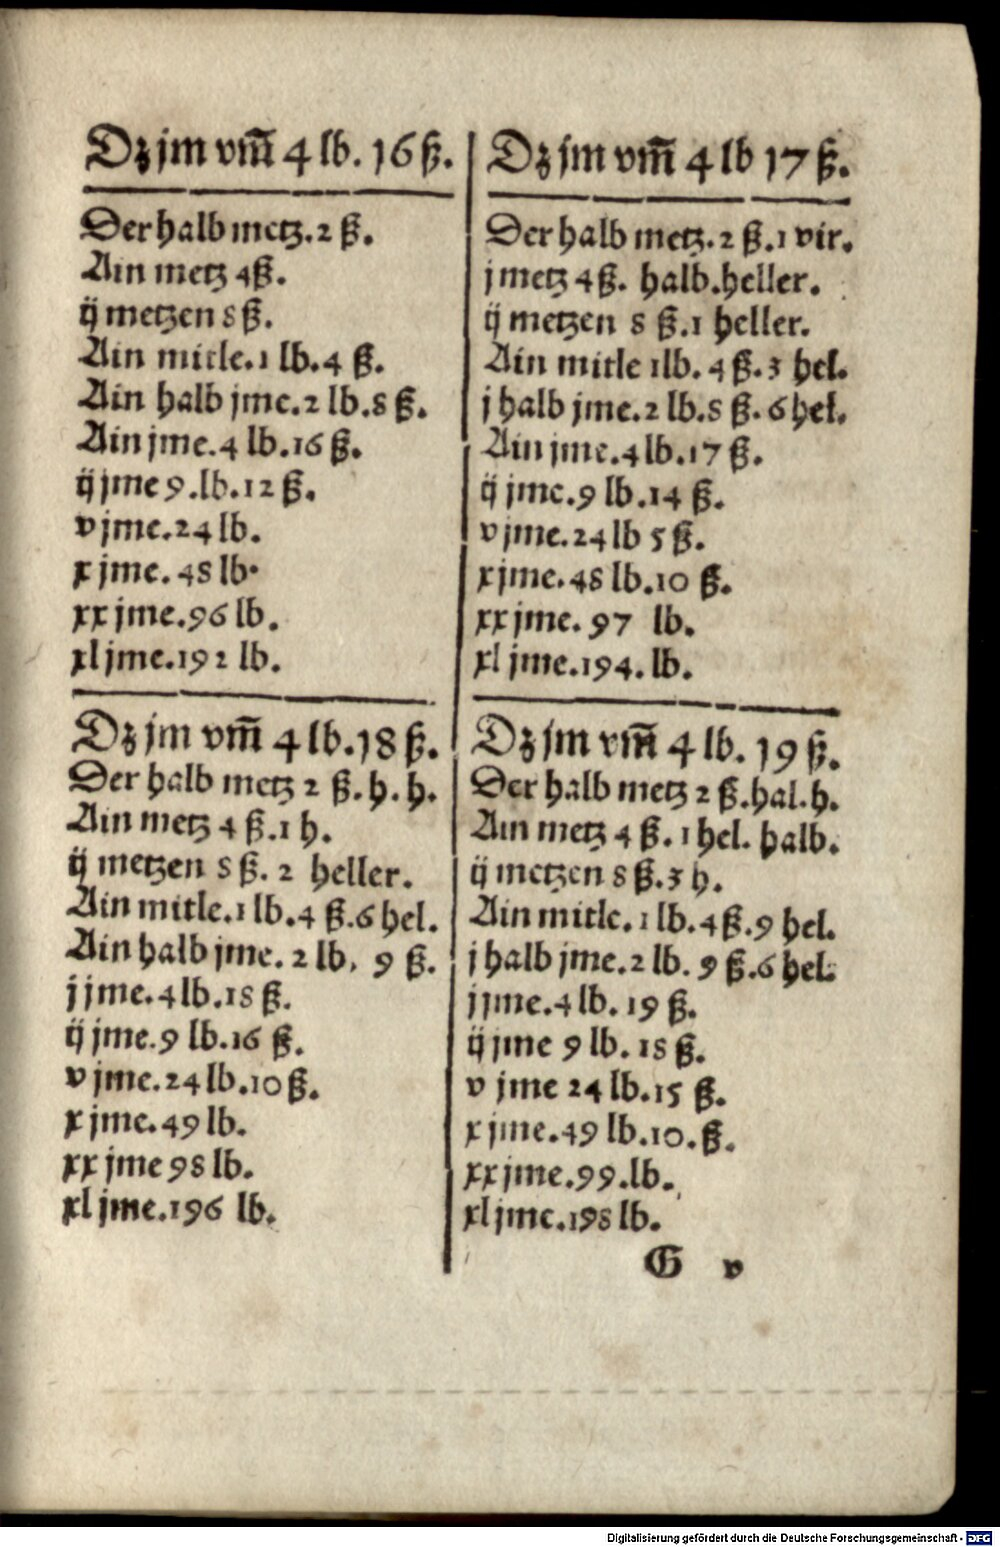 Dz jm vm̃ 4 lb. 16 ß.
Der halb metz. 2 ß.
Ain metz 4 ß.
ij metzen 8 ß.
Ain mitle. 1 lb. 4 ß.
Ain halb jme. 2 lb. 8 ß.
Ain jme. 4 lb. 16 ß.
ij jme 9. lb. 12 ß.
v jme. 24 lb.
x jme. 48 lb.
xx jme. 96 lb.
xl jme. 192 lb.
Dz jm vm̃ 4 lb 17 ß.
Der halb metz. 2 ß. 1 vir.
j metz 4 ß. halb. heller.
ij metzen 8 ß. 1 heller.
Ain mitle 1 lb. 4 ß. 3 hel.
j halb jme. 2 lb. 8 ß. 6 hel.
Ain jme. 4 lb. 17 ß.
ij jme. 9 lb. 14 ß.
v jme. 24 lb 5 ß.
x jme. 48 lb. 10 ß.
xx jme. 97 lb.
xl jme. 194. lb.
Dz jm vm̃ 4 lb. 18 ß.
Der halb metz 2 ß. h. h.
Ain metz 4 ß. 1 h.
ij metzen 8 ß. 2 heller.
Ain mitle. 1 lb. 4 ß. 6 hel.
Ain halb jme. 2 lb. 9 ß.
j jme. 4 lb. 18 ß.
ij jme. 9 lb. 16 ß.
v jme. 24 lb. 10 ß.
x jme. 49 lb.
xx jme 98 lb.
xl jme. 196 lb.
Dz jm vm̃ 4 lb. 19 ß.
Der halb metz 2 ß. hal. h.
Ain metz 4 ß. 1 hel. halb.
ij metzen 8 ß. 3 h.
Ain mitle. 1 lb. 4 ß. 9 hel.
j halb jme. 2 lb. 9 ß. 6 hel.
j jme. 4 lb. 19 ß.
ij jme 9 lb. 18 ß.
v jme 24 lb. 15 ß.
x jme. 49 lb. 10. ß.
xx jme. 99. lb.
xl jme. 198 lb.
G v
Digitalisierung gefördert durch die Deutsche Forschungsgemeinschaft - DFG